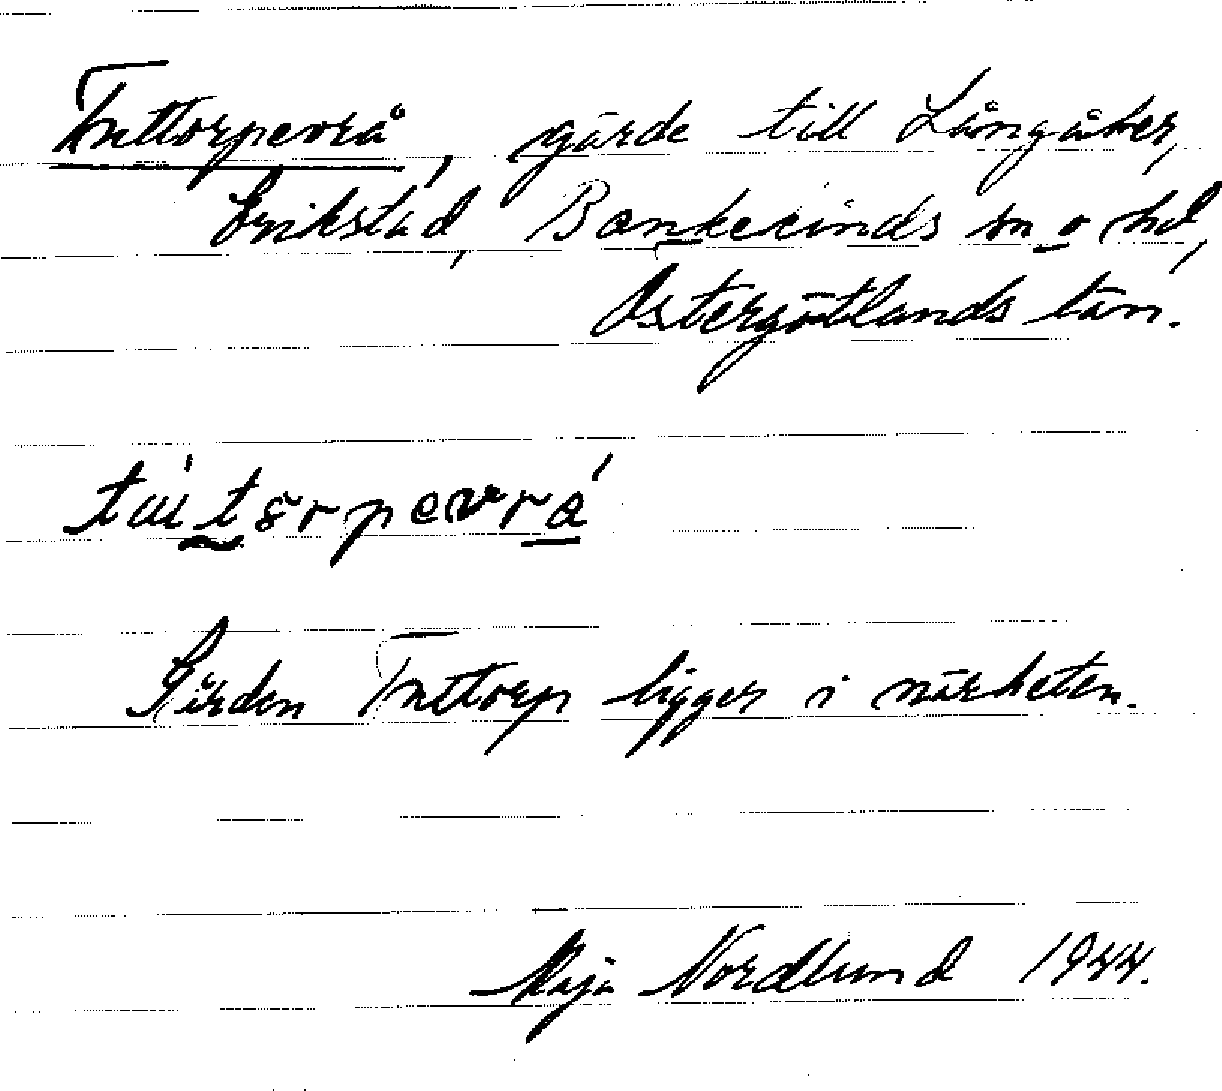 Tuttorpevrå, gärde till Långåker,
Erikstad, Bankekinds sn o hd,
Östergötlands län.
Gården Tuttorp ligger i närheten.
Maja Nordlund 1944.